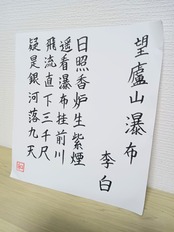 望廬山瀑布
李白
日照香炉生紫煙
遥看瀑布挂前川
飛流直下三千尺
疑是銀河落九天